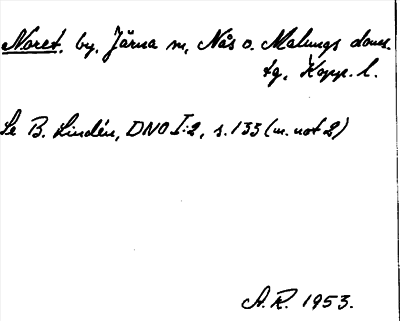 Noret. by. Järna sn, Nås o. Malungs doms.
tg, Kopp. l.
Se B. Lindén, DNO I:2, s. 135 (m. not 2)
A. R. 1953.